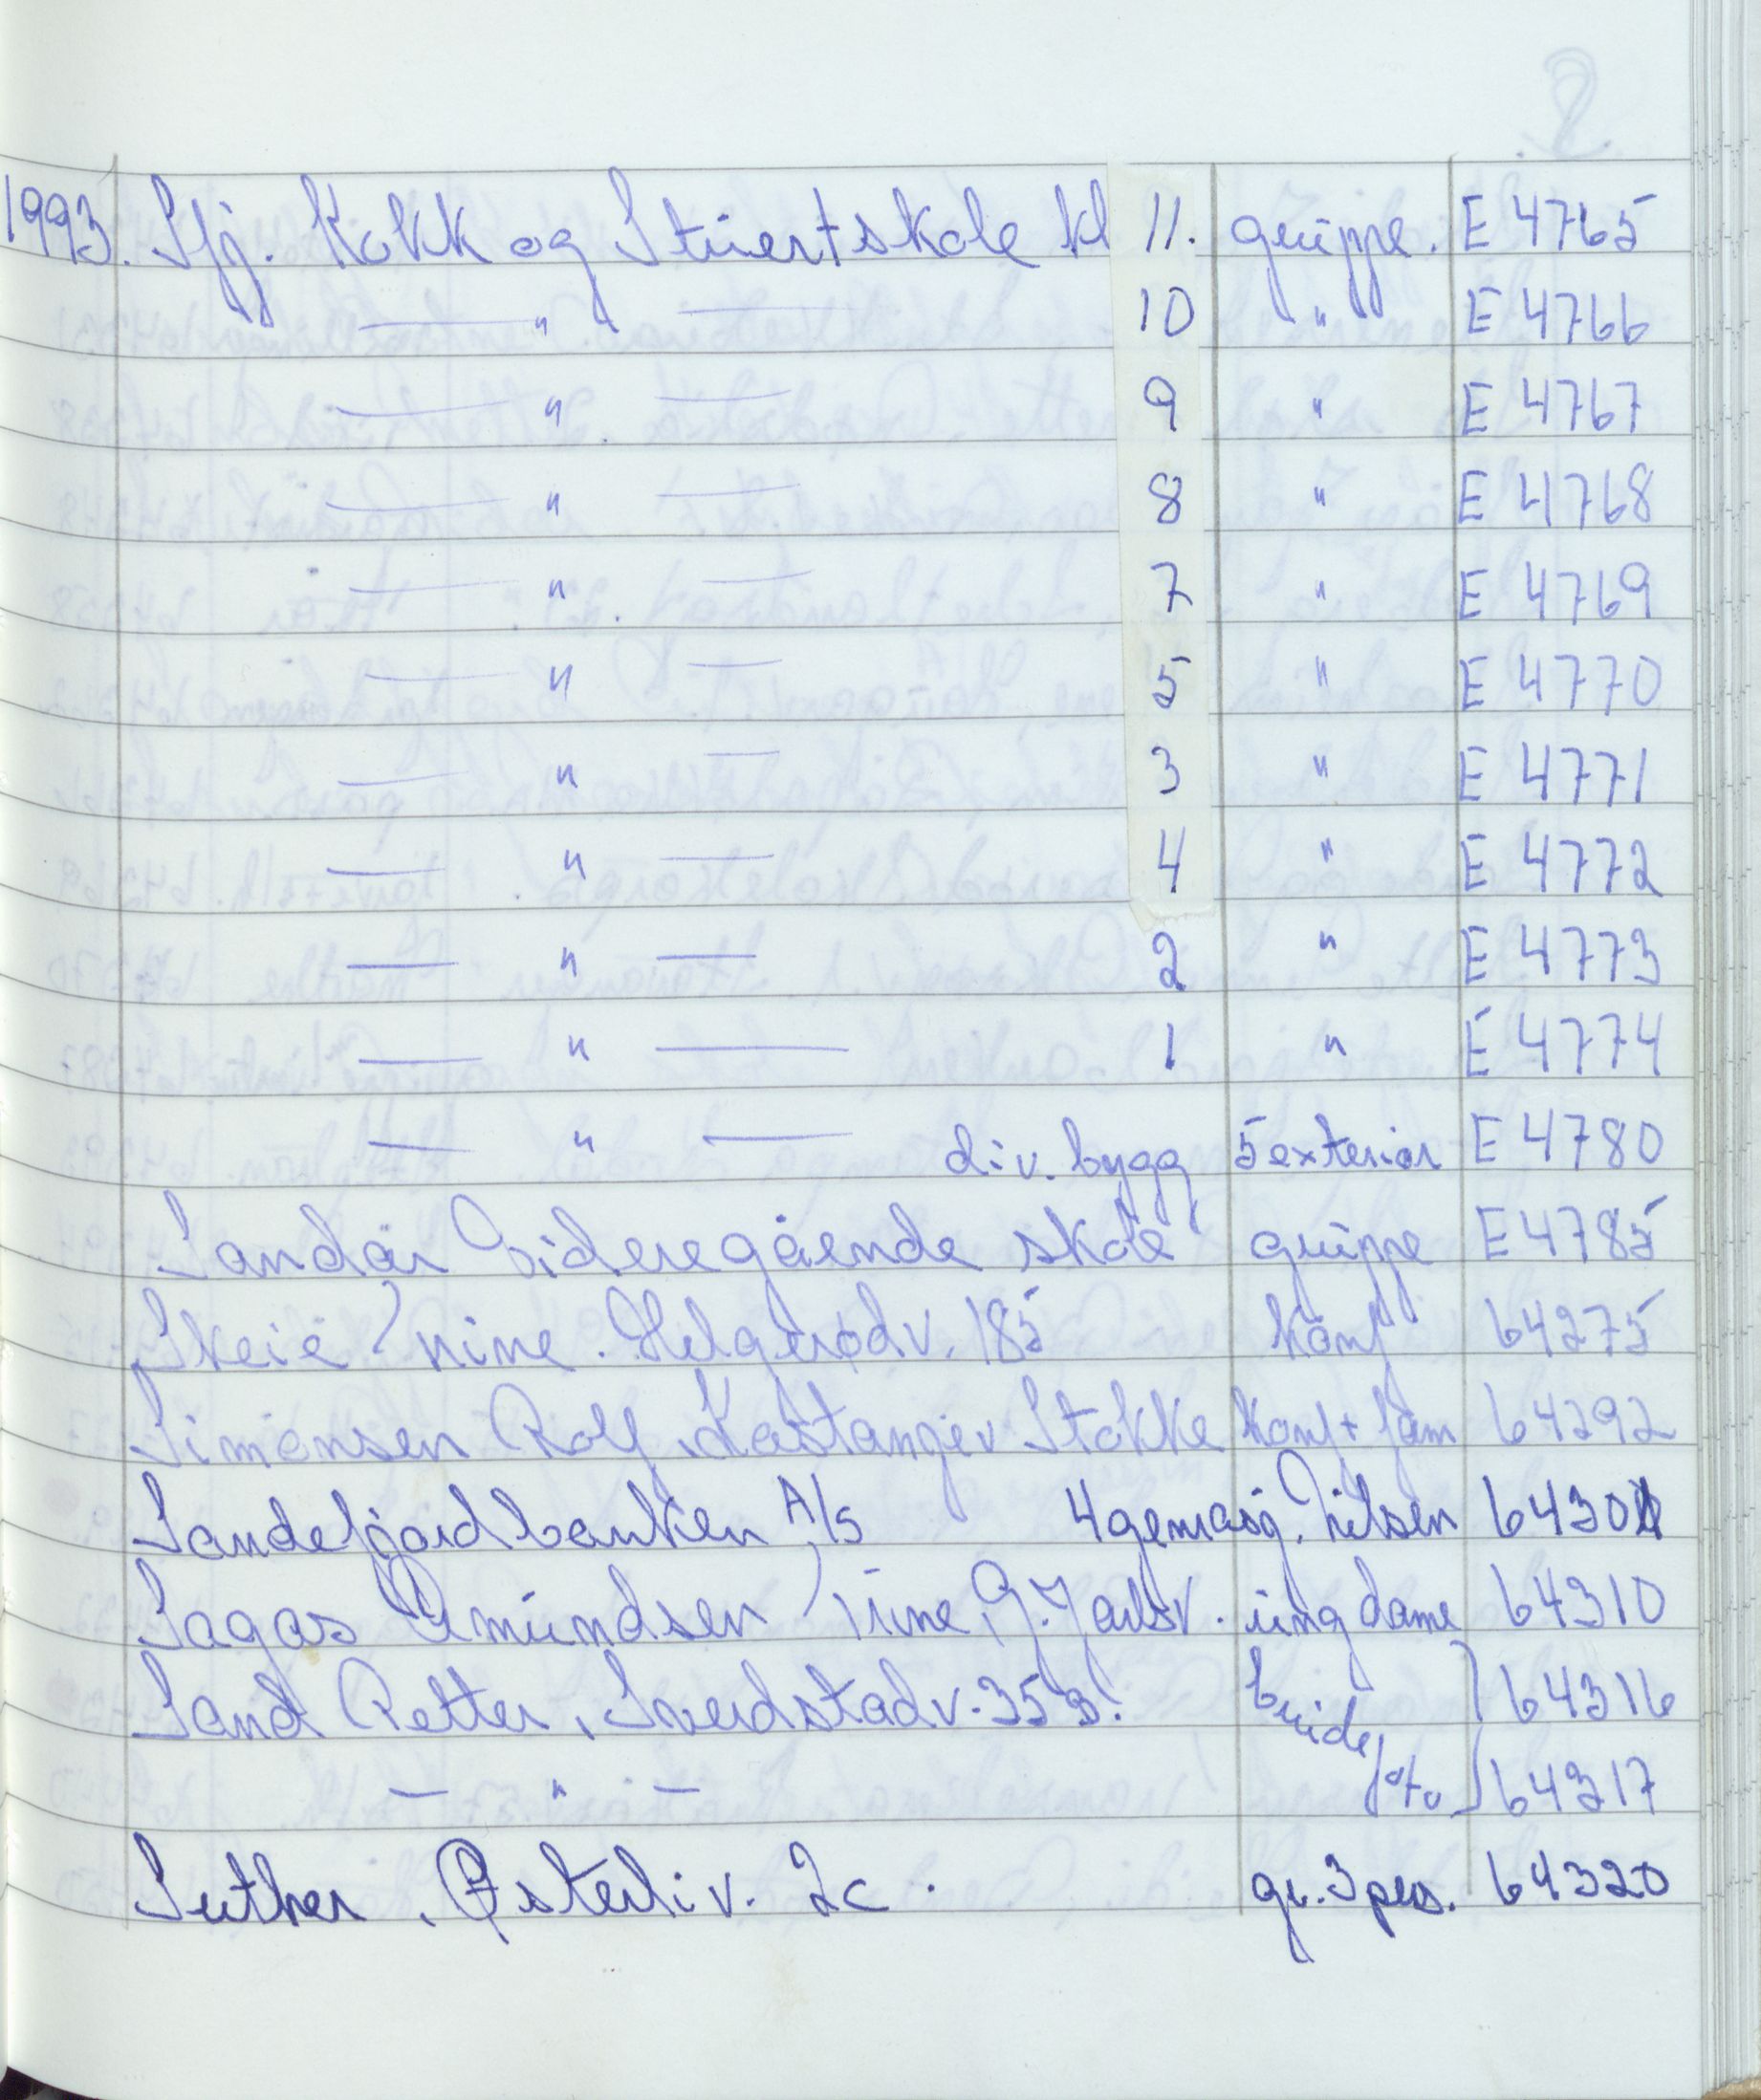 1993. Sfj. Kokk og Stuertskole kl 11. gruppe. E 4765
— " — 10 " E 4766
— " — 9 " E 4767
— " — 8 " E 4768
— " — 7 " E 4769
— " — 5 " E 4770
— " — 3 " E 4771
— " — 4 " E 4772
— " — 2 " E 4773
— " — 1 " E 4774
— " — div. bygg 5 exteriør E 4780
Sandar Videregående skole gruppe E 4785
Skeie Nine. Helgerødv. 185 konf 64275
Simonsen Rolf, Kastanjev Stokke konf + fam 64292
Sandefjordbanken A/S 4 Nilsen 6430
Sagas Amundsen Tune, ung dame 64310
Sand Petter, Sverdstadv. 35 B. brude 64316
— " — foto 64317
Suther, Østerliv. 2c. gr. 3 pers. 64320